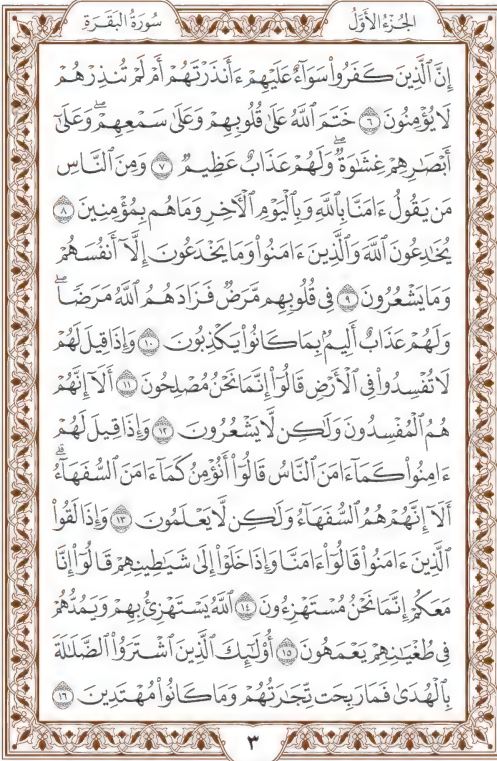 سُورَةُ البَقَرَةِ الجُزْءُ الأَوَّلُ
إِنَّ ٱلَّذِينَ كَفَرُواْ سَوَآءٌ عَلَيۡهِمۡ ءَأَنذَرۡتَهُمۡ أَمۡ لَمۡ تُنذِرۡهُمۡ
لَا يُؤۡمِنُونَ ٦ خَتَمَ ٱللَّهُ عَلَىٰ قُلُوبِهِمۡ وَعَلَىٰ سَمۡعِهِمۡۖ وَعَلَىٰٓ
أَبۡصَٰرِهِمۡ غِشَٰوَةٞۖ وَلَهُمۡ عَذَابٌ عَظِيمٞ ٧ وَمِنَ ٱلنَّاسِ
مَن يَقُولُ ءَامَنَّا بِٱللَّهِ وَبِٱلۡيَوۡمِ ٱلۡأٓخِرِ وَمَا هُم بِمُؤۡمِنِينَ ٨
يُخَٰدِعُونَ ٱللَّهَ وَٱلَّذِينَ ءَامَنُواْ وَمَا يَخۡدَعُونَ إِلَّآ أَنفُسَهُمۡ
وَمَا يَشۡعُرُونَ ٩ فِي قُلُوبِهِم مَّرَضٞ فَزَادَهُمُ ٱللَّهُ مَرَضٗاۖ
وَلَهُمۡ عَذَابٌ أَلِيمُۢ بِمَا كَانُواْ يَكۡذِبُونَ ١٠ وَإِذَا قِيلَ لَهُمۡ
لَا تُفۡسِدُواْ فِي ٱلۡأَرۡضِ قَالُوٓاْ إِنَّمَا نَحۡنُ مُصۡلِحُونَ ١١ أَلَآ إِنَّهُمۡ
هُمُ ٱلۡمُفۡسِدُونَ وَلَٰكِن لَّا يَشۡعُرُونَ ١٢ وَإِذَا قِيلَ لَهُمۡ
ءَامِنُواْ كَمَآ ءَامَنَ ٱلنَّاسُ قَالُوٓاْ أَنُؤۡمِنُ كَمَآ ءَامَنَ ٱلسُّفَهَآءُۗ
أَلَآ إِنَّهُمۡ هُمُ ٱلسُّفَهَآءُ وَلَٰكِن لَّا يَعۡلَمُونَ ١٣ وَإِذَا لَقُواْ
ٱلَّذِينَ ءَامَنُواْ قَالُوٓاْ ءَامَنَّا وَإِذَا خَلَوۡاْ إِلَىٰ شَيَٰطِينِهِمۡ قَالُوٓاْ إِنَّا
مَعَكُمۡ إِنَّمَا نَحۡنُ مُسۡتَهۡزِءُونَ ١٤ ٱللَّهُ يَسۡتَهۡزِئُ بِهِمۡ وَيَمُدُّهُمۡ
فِي طُغۡيَٰنِهِمۡ يَعۡمَهُونَ ١٥ أُوْلَٰٓئِكَ ٱلَّذِينَ ٱشۡتَرَوُاْ ٱلضَّلَٰلَةَ
بِٱلۡهُدَىٰ فَمَا رَبِحَت تِّجَٰرَتُهُمۡ وَمَا كَانُواْ مُهۡتَدِينَ ١٦
٣